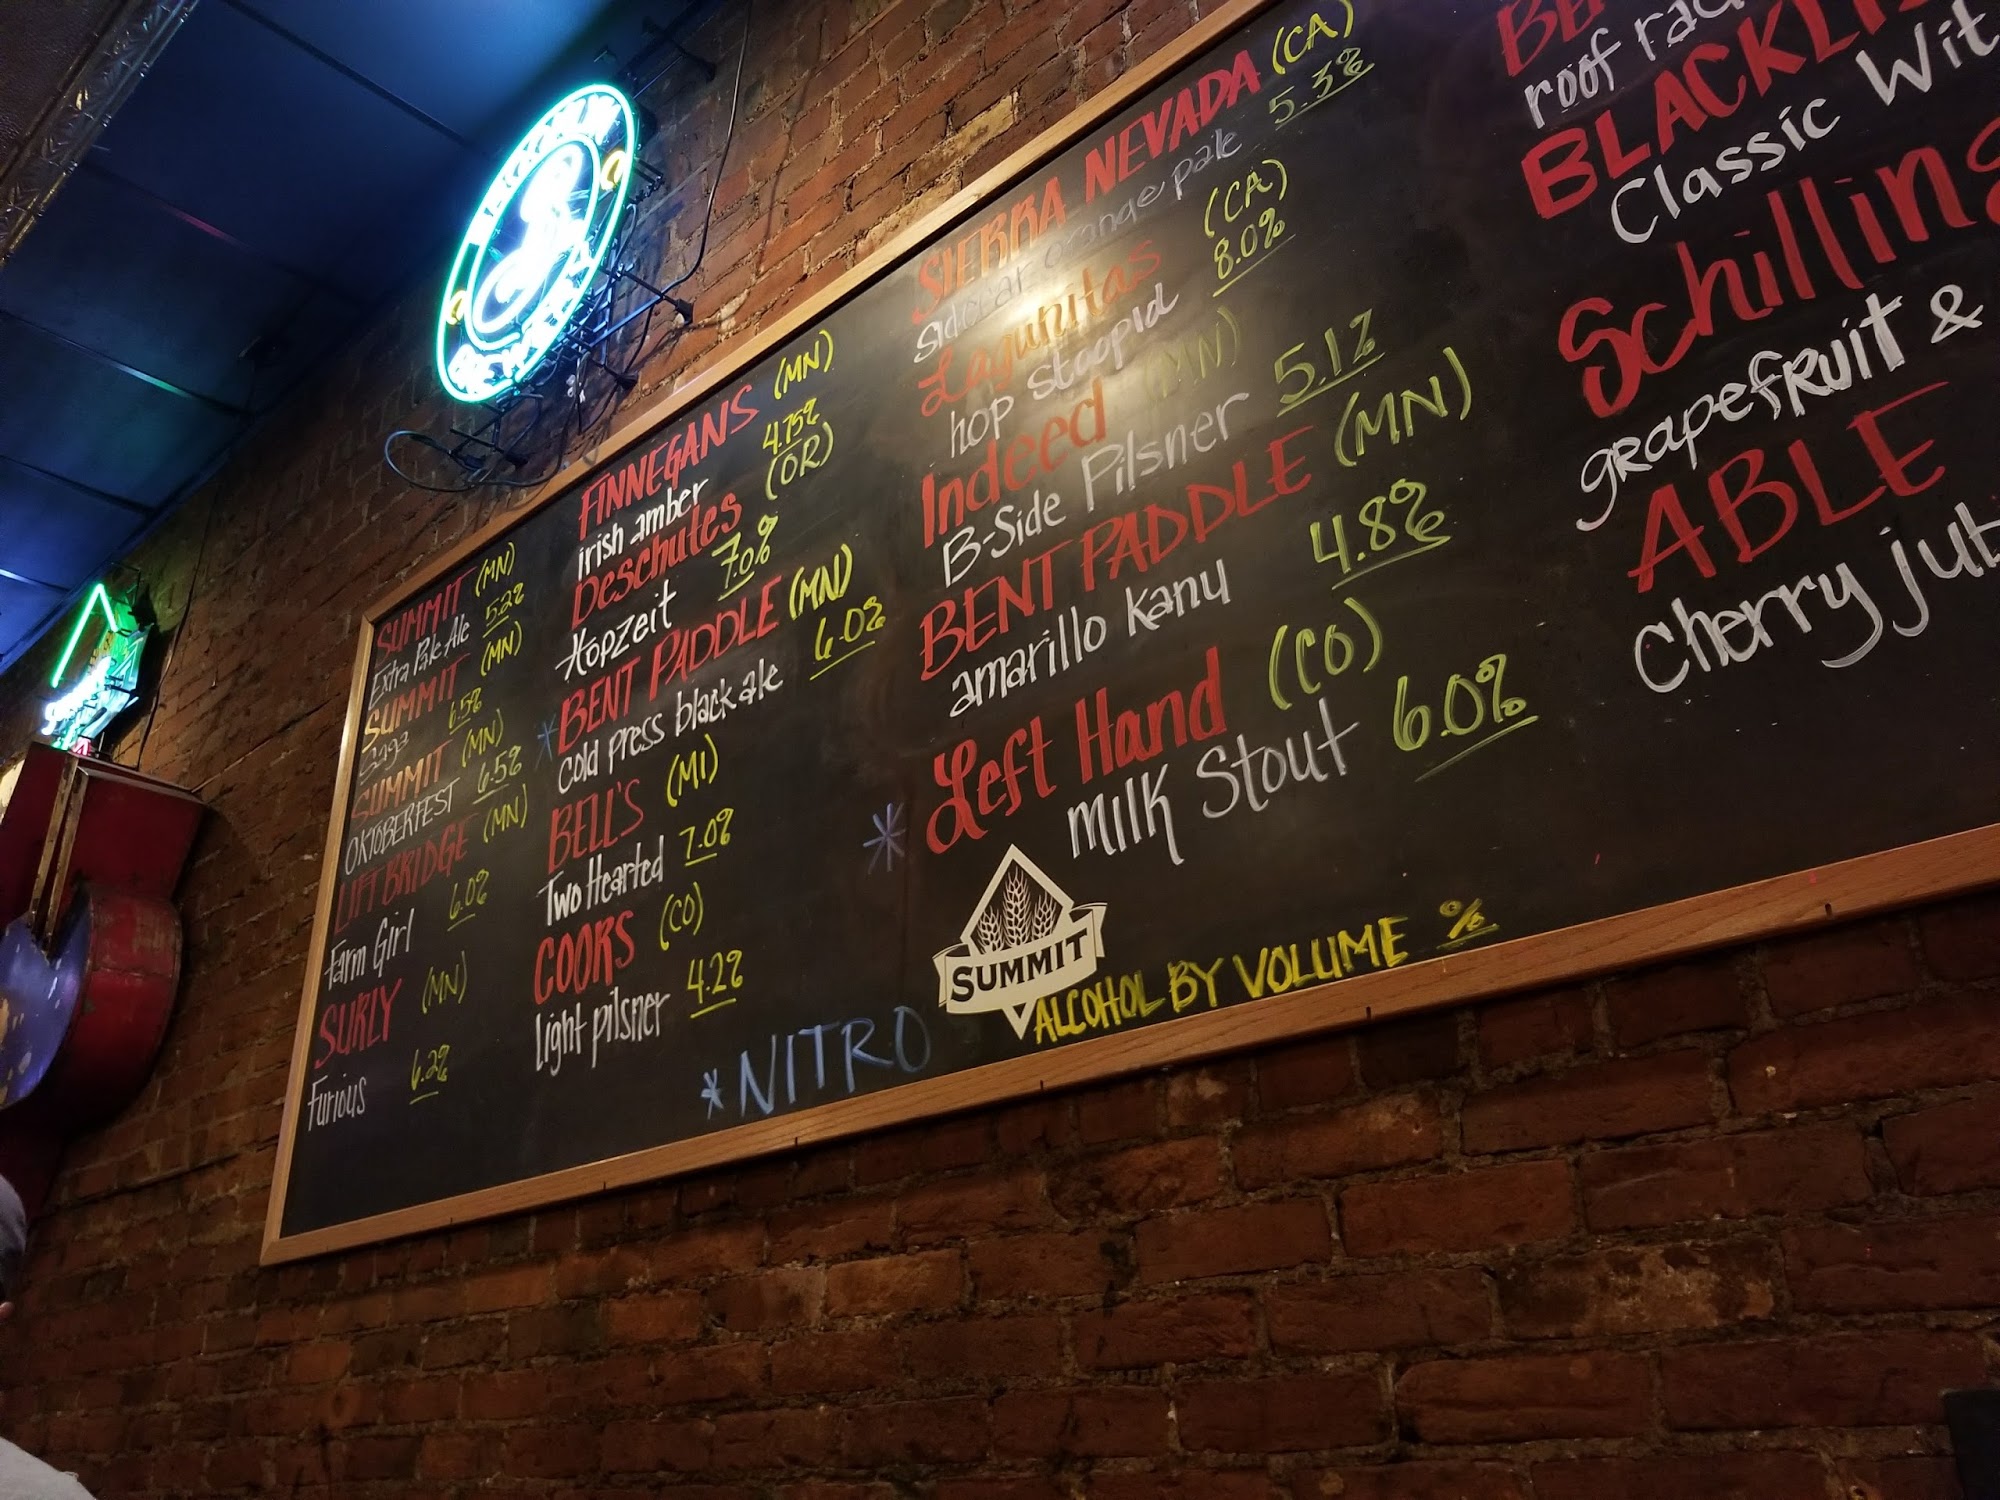 BROOKLYN
BREWERY
SUMMIT (MN)
Extra Pale Ale 5.2%
SUMMIT (MN)
Saga 6.5%
SUMMIT (MN)
OKTOBERFEST 6.5%
LIFT BRIDGE (MN)
Farm Girl 6.0%
SURLY (MN)
Furious 6.2%
FINNEGANS (MN)
irish amber 4.75%
Deschutes (OR)
Hopzeit 7.0%
* BENT PADDLE (MN)
cold press black ale 6.0%
BELL'S (MI)
Two Hearted 7.0%
COORS (CO)
light pilsner 4.2%
* NITRO
SIERRA NEVADA (CA)
sidecar orange pale 5.3%
Lagunitas (CA)
hop stoopid 8.0%
Indeed (MN)
B-Side Pilsner 5.1%
BENT PADDLE (MN)
amarillo kanu 4.8%
* Left Hand (CO)
milk Stout 6.0%
SUMMIT
ALCOHOL BY VOLUME %
roof
Classic Wit
Schilling
grapefruit &
ABLE
Cherry